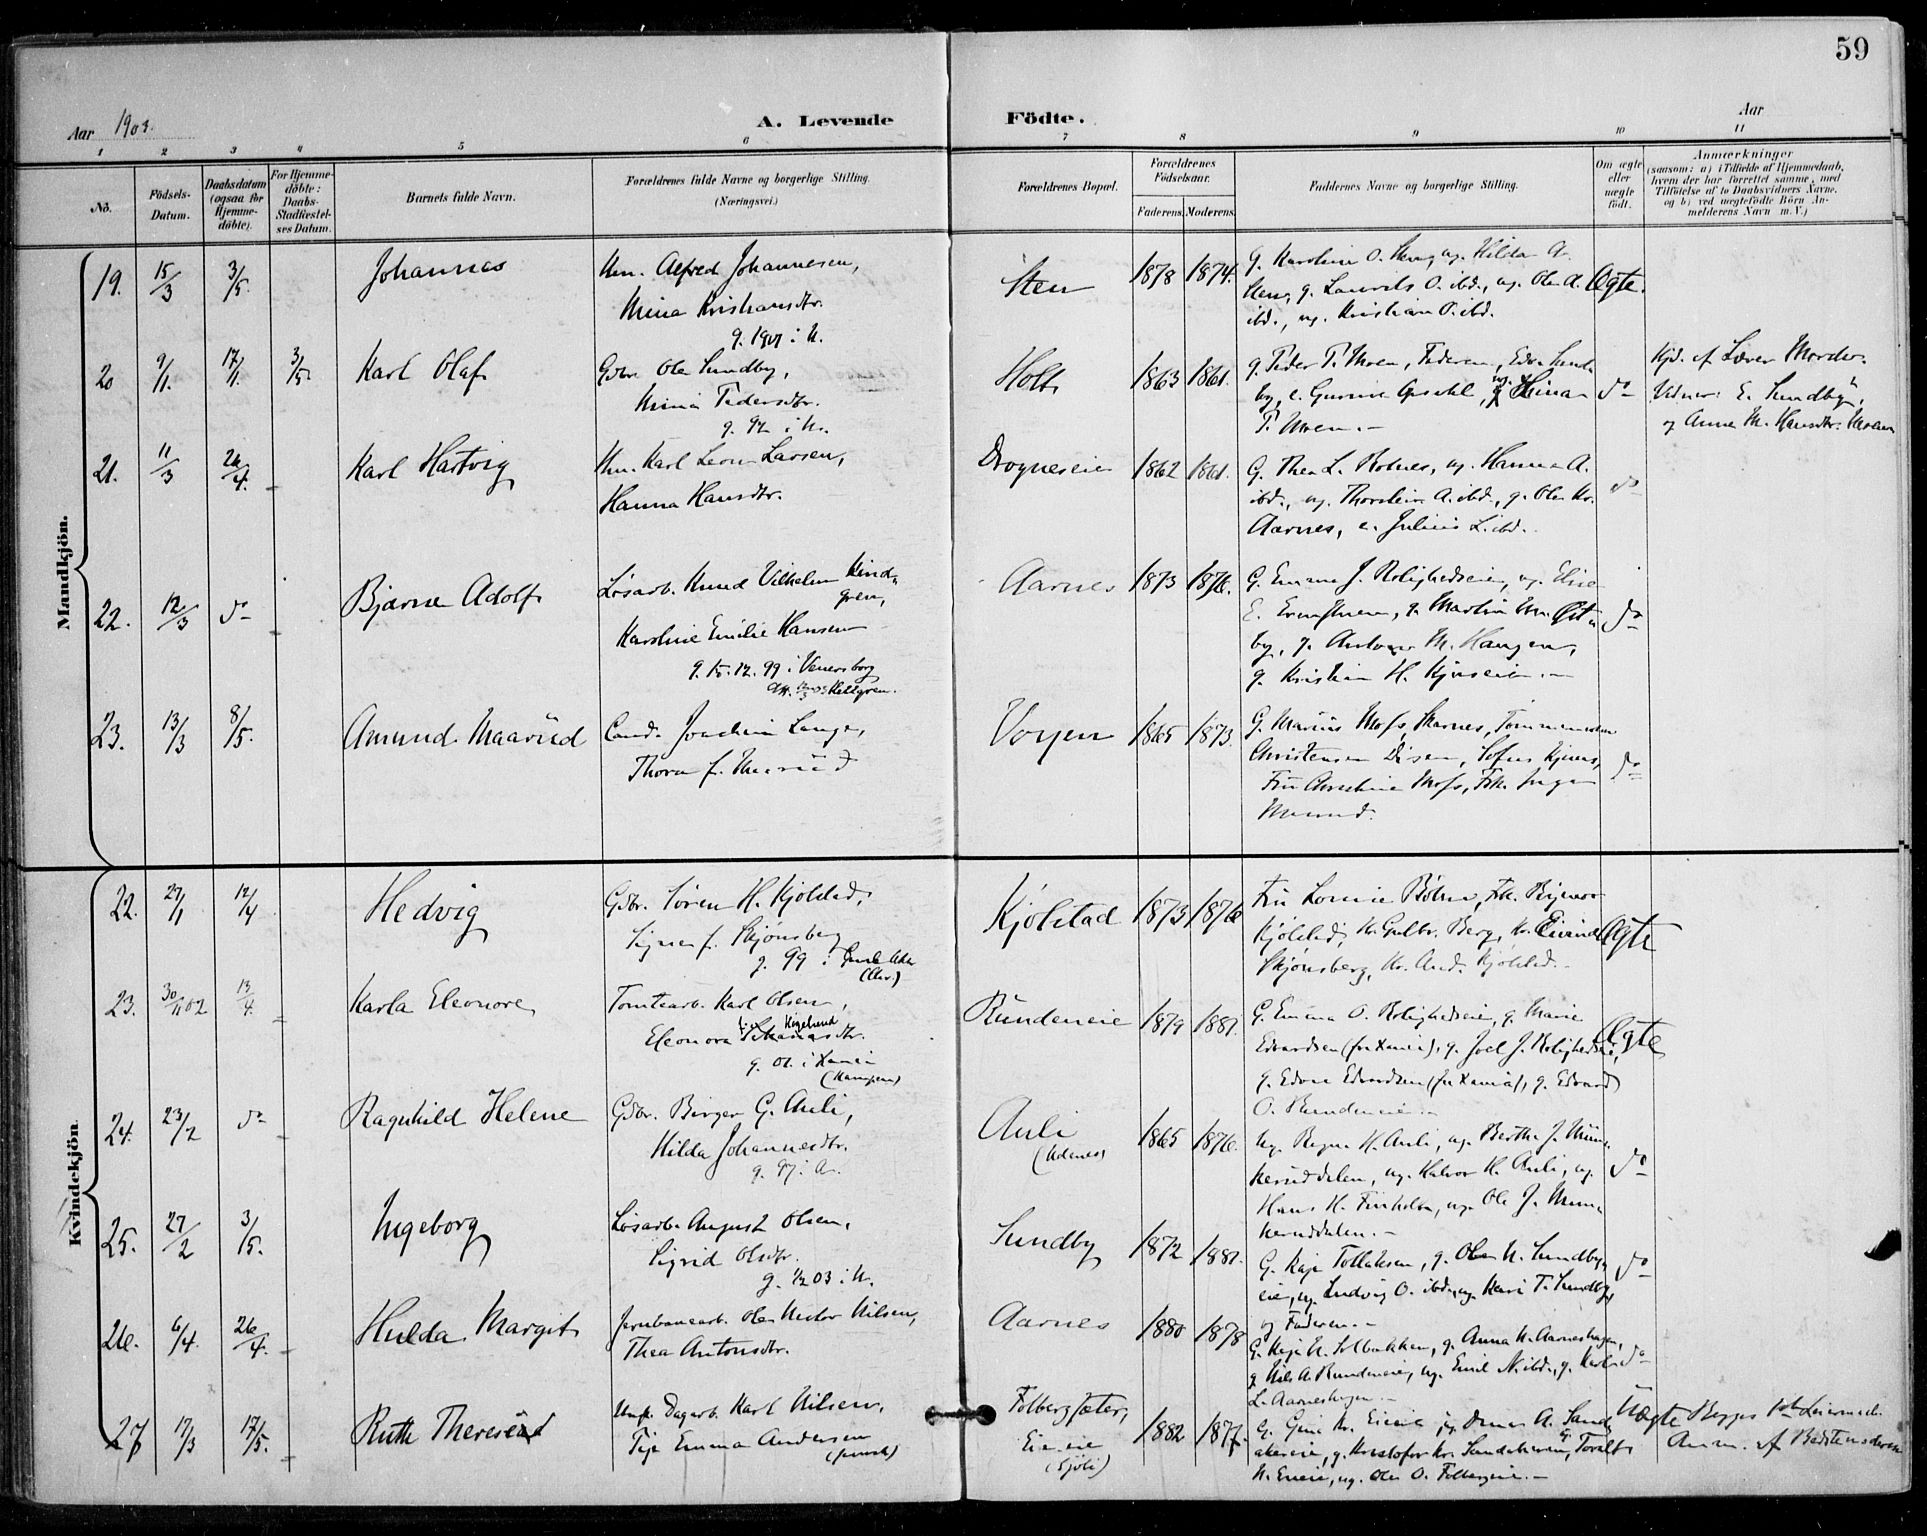 59
Aar 1903.
A. Levende Födte.
Aar
1 2 3 4 5 6 7 8 9 10 11
No.
Födsels-Datum.
Daabsdatum (ogsaa for Hjemme-döbte).
For Hjemme-döbte: Daabs-Stadfæstel-ses Datum.
Barnets fulde Navn.
Forældrenes fulde Navne og borgerlige Stilling.
(Næringsvei.)
Forældrenes Bopæl.
Forældrenes Födselsaar.
Faderens. Moderens.
Faddernes Navne og borgerlige Stilling.
Om ægte eller uægte födt.
Anmærkninger
(saasom: a) i Tilfælde af Hjemmedaab,
hvem der har forrettet samme, med
Tilföielse af to Daabsvidners Navne,
og b) ved uægtefödte Börn An-
melderens Navn m. V.)
Mandkjön.
19. 15/3 3/5. Johannes
Alfred Johannesen,
Mina Kristiansdtr.
g. 1901 i N.
Sten 1878 1874.
g. Karoline O. Sten, ug. Hilda A.
Sten, g. Laurits O. ibd., ug. Ole A.
ibd., ug. Kristian O. ibd.
Ægte.
20 9/1. 17/1. 3/5. Karl Olaf
Gbr. Ole Sundby,
Mina Pedersdtr.
g. 92 i N.
Holt 1863 1861.
g. Peder P. Moen, Faderen, Edv. Sund-
by, e. Gunine Opsahl, ug. Stina
P. Moen.-
do
Hjd. af Lærer
Vidner: E. Sundby,
og Anne M. Hansdtr. Moen
21. 11/3 26/4. Karl Hartvig
Karl Leon. Larsen,
Hanna Hansdtr.
Drogneseie 1862 1861.
G. Thea L. Rotnes, ug. Hanna A.
ibd., ug. Thorstein A. ibd., g. Ole Kr.
Aarnes, e. Julius L. ibd.
do
22. 12/3 do Bjarne Adolf
Løsarb. Knud Vilhelm Kind-
gren,
Karoline Emilie Hansen
g. 10.12.99 i Venersborg
Aarnes 1873 1876.
G. Emma J. Rolighedseie, ug. Elise
E. g. Martin Øst-
by, g. Anton M. Haugen,
g. Kristian H.
do
23. 13/3 8/5. Amund Maarud
Cand. Joachim Lange,
Thora f. Maarud
Vorjen 1865 1873.
G. Marius Moss, Skarnes,
Christensen Disen, Sofus
Fru Christine Moss, Frk. Inga
Maarud.
do
Kvindekjön.
22. 27/1 12/4 Hedvig
Gbr. Søren H. Kjölstad,
Signe f. Skjønsberg
g. 99 i
Kjölstad 1873 1876
Fru Lovise Bøhn, Frk.
Kjölstad, Hr. Gulbr. Berg, Hr. Eivind
Skjønsberg, Hr. And. Kjölstad.-
Ægte
23. 30/11 02 13/4. Karla Eleonore
Tomtearb. Karl Olsen,
Eleonora
g. 01. i Xania
(Kampen)
Rundeneie 1879 1881.
G. Emma O. Rolighedseie, g. Marie
Edvardsen (fra Xania), g. Joel J. Rolighedseie,
g. Edvin Edvardsen (fra Xania), g. Edvard
O. Rundeneie.-
Ægte
24. 23/2 do Ragnhild Helene
Gbr. Birger G. Auli,
Hilda Johannesdtr.
g. 97 i A.
Auli
(Udenes)
1865 1876.
ug. Ragna H. Auli, ug. Berthe J. Mun-
keruddalen, ug. Halvor H. Auli, ug.
Hans H. Finholt, ug. Ole J. Mun-
keruddalen.-
do
25. 27/2 3/5. Ingeborg
Løsarb. August Olsen,
Sigrid Olsdtr.
g. 03 i N.
Sundby 1872 1881.
G. Kaja Tollaksen, g. Ole N. Sundby-
eie, ug. Ludvig O. ibd., ug. Kari T. Sundby
og Faderen.-
do
26. 6/4. 26/4. Hulda Margit
Jernbanearb. Ole Victor Nilsen,
Thea Antonsdtr.
Aarnes 1880 1878
G. Kaja N. Solbakken, g. Anna N. Aarneshagen,
g. Nils A. Rundeneie, ug. Emil N. ibd., g. Karl
L. Aarneshagen.-
do
27 17/3 17/5. Ruth Therese
Ungk. Dagarb. Karl Nilsen,
Pige Emma Andersen
(svensk)
Folbergsæter,
Eieeie
(Sjöli)
1882 1877.
G. Gina Kr. Eieeie, ug. A. Sand-
akereie, g. Kristofer Kr. Toralf
N. Eieeie, ug. Ole O. Folbergeie.-
Uægte Begges 1ste Leiermaal.
Anm. af Bedstemoderen